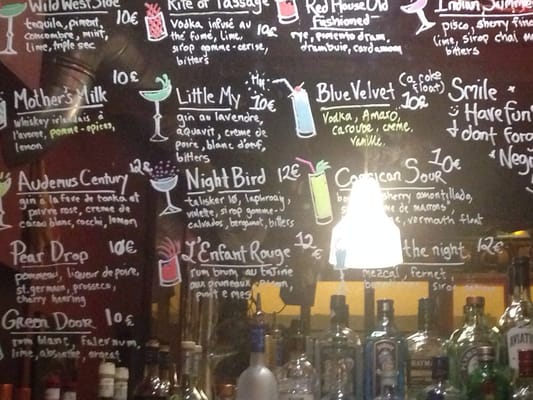 Wild West Side 10€
tequila, piment,
concombre, mint,
lime, triple sec
10€
Mother's Milk
whiskey irlandais à
l'avoine, pomme-epices,
lemon
12€
Audemus Century
gin a la feve de tonka et
poivre rose, creme de
cacao blanc, cocchi, lemon
Pear Drop 10€
pommeau, liqueur de poire,
st.germain, prosseco,
cherry heering
Green Door 10€
rum blanc, falernum,
lime, absinthe, orgeat
Rite of Passage
Vodka infusé au
thé fumé, lime,
sirop gomme-cerise,
bitters
Little My 10€
gin au lavendre,
aquavit, creme de
poire, blanc d'oeuf,
bitters
Night Bird 12€
talisker 10, laphroaig,
violette, sirop gomme-
calvados, bergamot, bitters
L'Enfant Rouge 12€
rum brum, au tajine
aux pruneaux,
punt e mes
Red House Old
Fashioned
rye, pimento dram,
drambuie, cardamom
Blue Velvet (a coke
float) 10€
Vodka, Amaro,
caroube, creme
vanille
Corsican Sour 10€
sherry amontillado,
de marrons,
vermouth float
the night 12€
mezcal, fernet,
Indian Summer
pisco, sherry fino
lime, sirop chai
bitters
Smile
Have fun
dont forg
Negr
AVIATION